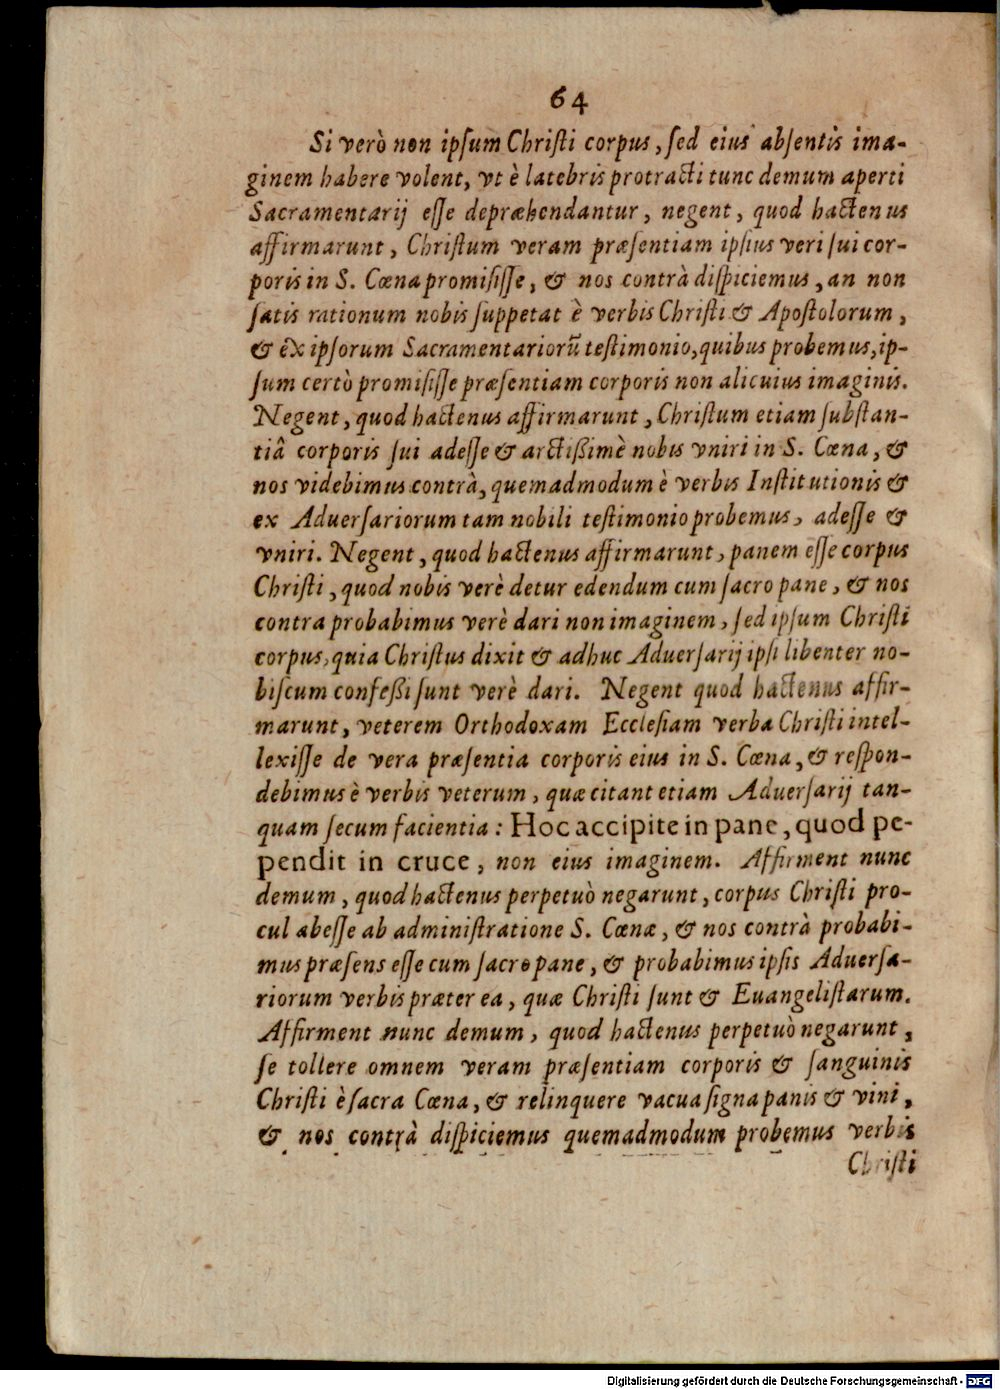 64
Si verò non ipſum Chriſti corpus, ſed eius abſentis ima-
ginem habere volent, vt è latebris protracti tunc demum aperti
Sacramentarij eſſe depræhendantur, negent, quod hactenus
affirmarunt, Chriſtum veram præſentiam ipſius veri ſui cor-
poris in S. Cœna promiſiſſe, & nos contrà diſpiciemus, an non
ſatis rationum nobis ſuppetat è verbis Chriſti & Apoſtolorum,
& ex ipſorum Sacramentariorũ teſtimonio, quibus probemus, ip-
ſum certò promiſiſſe præſentiam corporis non alicuius imaginis.
Negent, quod hactenus affirmarunt, Chriſtum etiam ſubſtan-
tiâ corporis ſui adeſſe & arctißimè nobis vniri in S. Cœna, &
nos videbimus contrà, quemadmodum è verbis Inſtitutionis &
ex Aduerſariorum tam nobili teſtimonio probemus, adeſſe &
vniri. Negent, quod hactenus affirmarunt, panem eſſe corpus
Chriſti, quod nobis verè detur edendum cum ſacro pane, & nos
contra probabimus verè dari non imaginem, ſed ipſum Chriſti
corpus, quia Chriſtus dixit & adhuc Aduerſarij ipſi libenter no-
biſcum confeßi ſunt verè dari. Negent quod hactenus affir-
marunt, veterem Orthodoxam Eccleſiam verba Chriſti intel-
lexiſſe de vera præſentia corporis eius in S. Cœna, & reſpon-
debimus è verbis veterum, quæ citant etiam Aduerſarij tan-
quam ſecum facientia: Hoc accipite in pane, quod pe-
pendit in cruce, non eius imaginem. Affirment nunc
demum, quod hactenus perpetuò negarunt, corpus Chriſti pro-
cul abeſſe ab adminiſtratione S. Cœnæ, & nos contrà probabi-
mus præſens eſſe cum ſacro pane, & probabimus ipſis Aduerſa-
riorum verbis præter ea, quæ Chriſti ſunt & Euangeliſtarum.
Affirment nunc demum, quod hactenus perpetuò negarunt,
ſe tollere omnem veram præſentiam corporis & ſanguinis
Chriſti è ſacra Cœna, & relinquere vacua ſigna panis & vini,
& nos contrà diſpiciemus quemadmodum probemus verbis
Chriſti
Digitalisierung gefördert durch die Deutsche Forschungsgemeinschaft - DFG